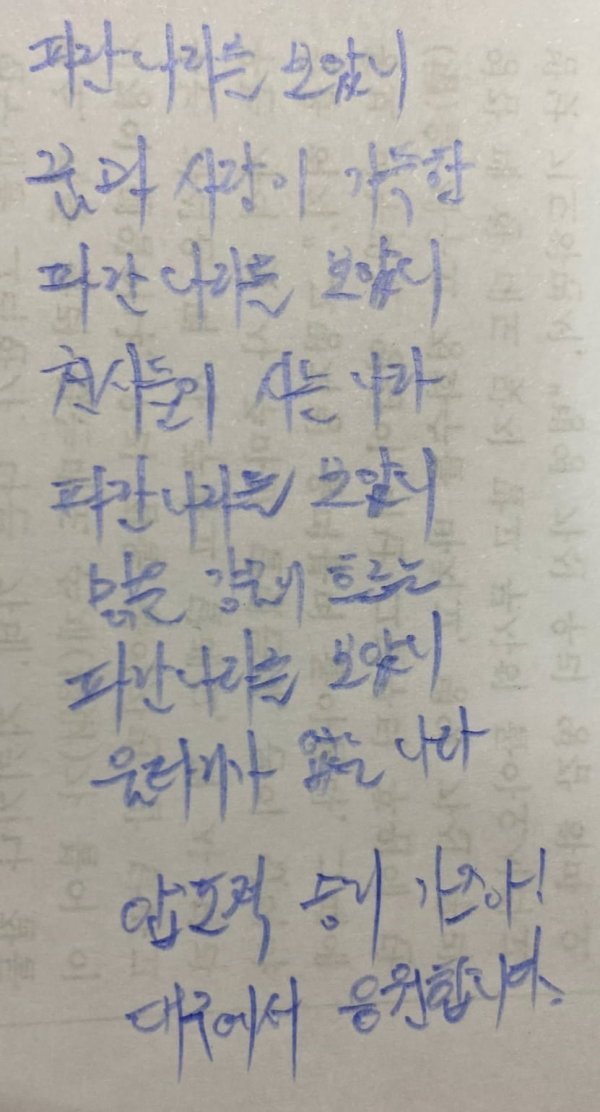 파란나라를 보았니
꿈과 사랑이 가득한
파란 나라를 보았니
천사들이 사는 나라
파란나라를 보았니
맑은 강물이 흐르는
파란나라를 보았니
울타리가 없는 나라
압도적 승리 가즈아!
대구에서 응원합니다.